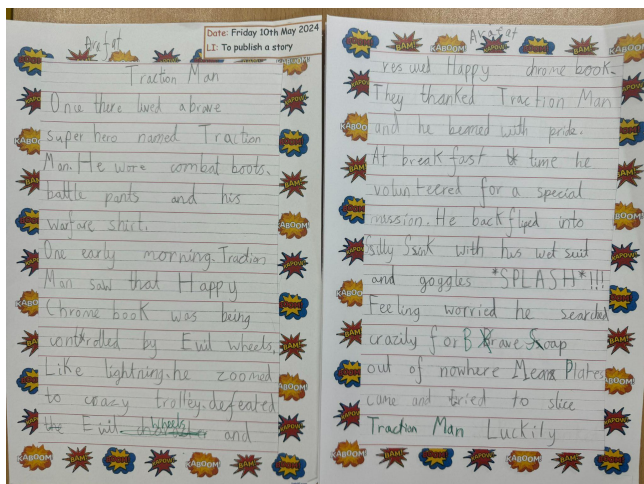 Arafat
Date: Friday 10th May 2024
LI: To publish a story
Traction Man
Once there lived a brave
super hero named Traction
Man. He wore combat boots,
battle pants and his
warfare shirt.
One early morning, Traction
Man saw that Happy
Chrome book was being
controlled by Evil Wheels.
Like lightning, he zoomed
to crazy trolley, defeated
the Evil Wheels and
Arafat
reswed Happy chrome book.
They thanked Traction Man
and he beamed with pride.
At break fast time he
volunteered for a special
mission. He back fliped into
Silly Sink with his wet suit
and goggles *SPLASH*!!!
Feeling worried he searched
crazily for Brave Soap
out of nowhere Mean Plates
came and tried to slice
Traction Man Luckily
KABOOM!
BAM!
KAPOW!